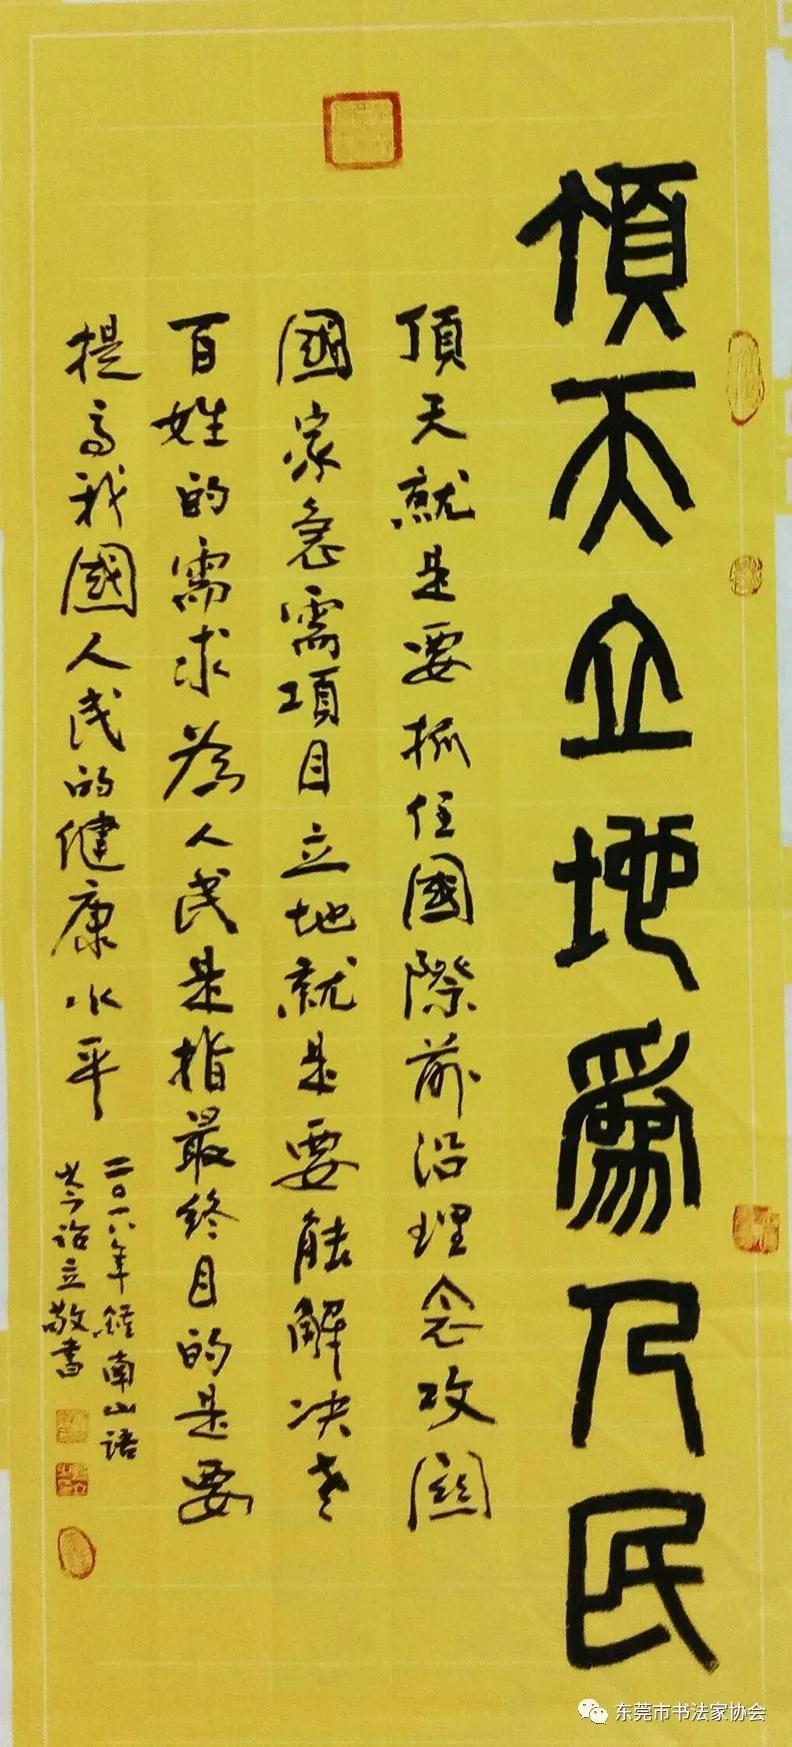 頂天立地為人民
頂天就是要抓住國際前沿理念攻關
國家急需項目立地就是要能解決老
百姓的需求為人民是指最終目的是要
提高我國人民的健康水平
二〇一八年鍾南山語
岑詒立敬書
东莞市书法家协会